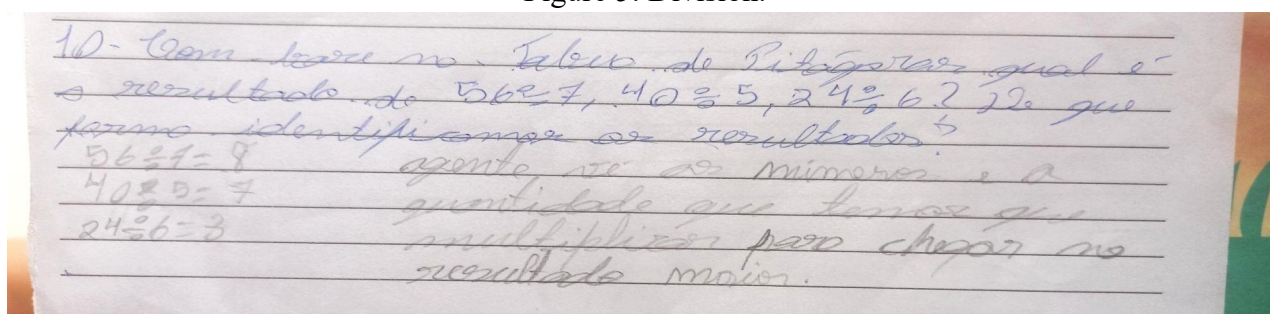 Figure 5. Division.
10- Com base na Tabua de Pitágoras qual é
o resultado de 56÷7, 40÷5, 24÷6? De que
forma identificamos os resultados?
56÷7=8 agente vê os números e a
40÷5=7 quantidade que temos que
24÷6=3 multiplicar para chegar no
resultado maior.